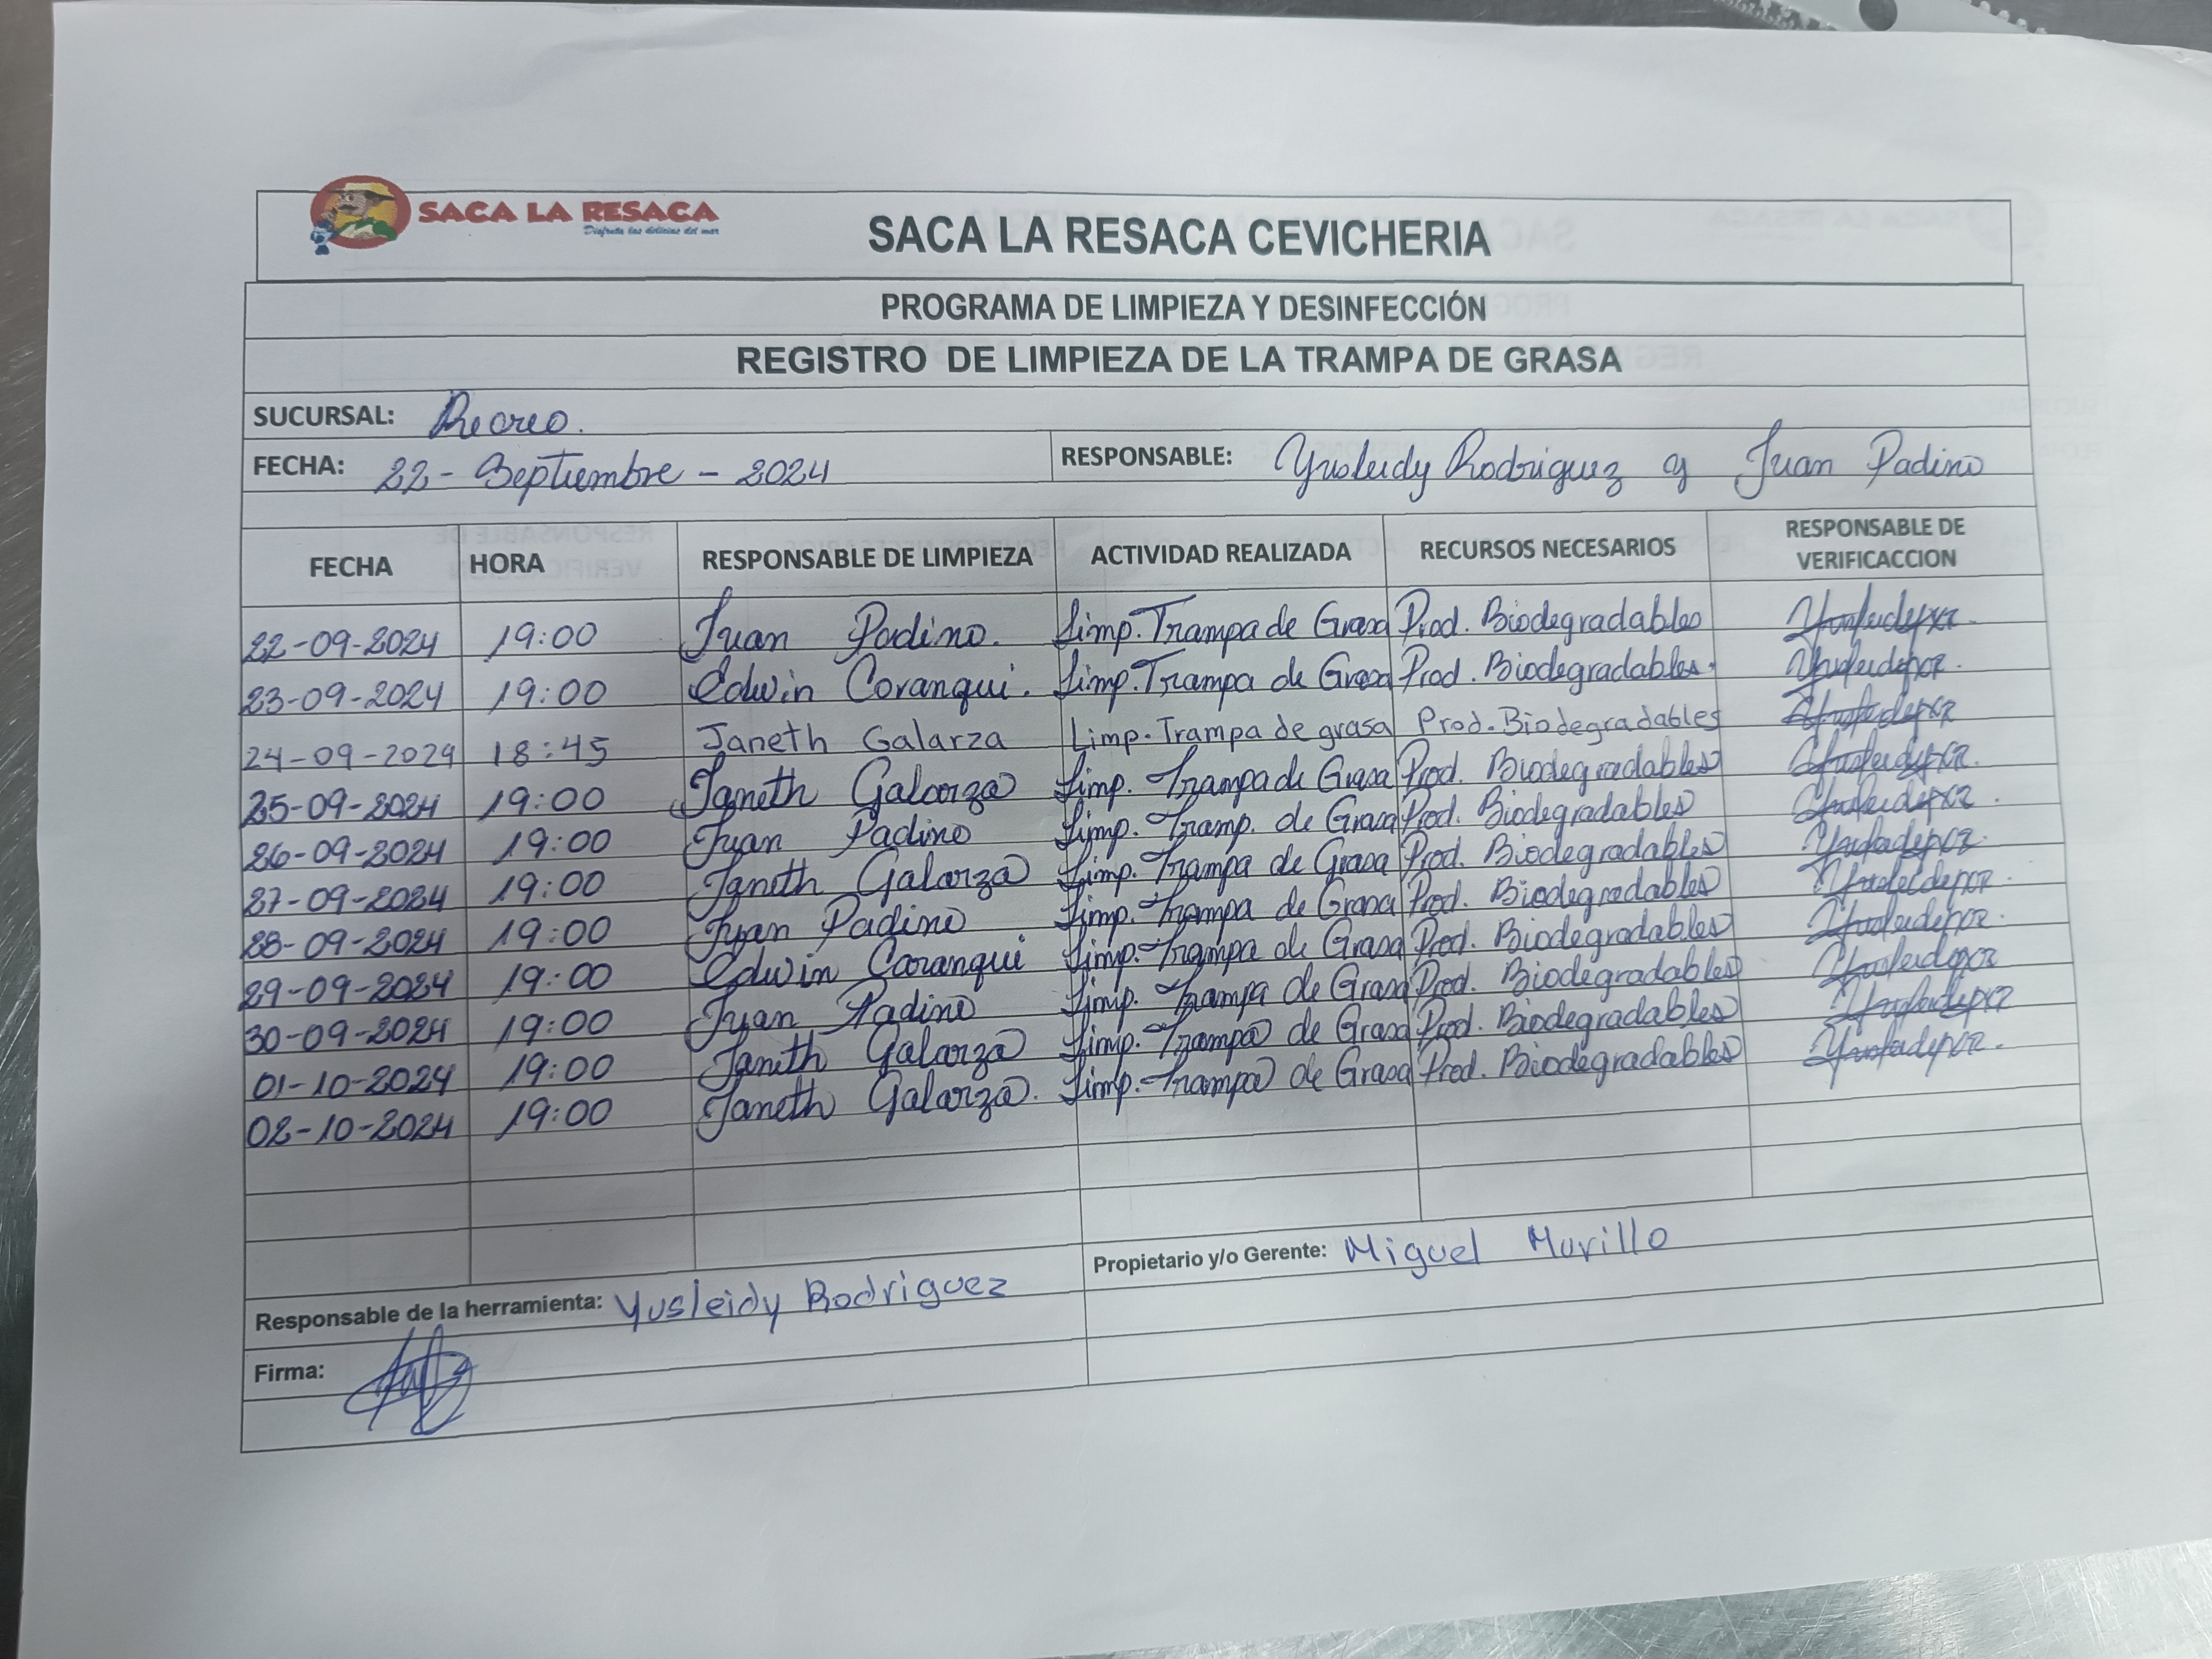 SACA LA RESACA
Disfruta las delicias del mar
SACA LA RESACA CEVICHERIA
PROGRAMA DE LIMPIEZA Y DESINFECCIÓN
REGISTRO DE LIMPIEZA DE LA TRAMPA DE GRASA
SUCURSAL: Recreo.
FECHA: 22 - Septiembre - 2024 RESPONSABLE: Yusleidy Rodriguez y Juan Padino
FECHA HORA RESPONSABLE DE LIMPIEZA ACTIVIDAD REALIZADA RECURSOS NECESARIOS RESPONSABLE DE VERIFICACCION
22-09-2024 19:00 Juan Padino. Limp. Trampa de Grasa Prod. Biodegradables
23-09-2024 19:00 Edwin Coranqui. Limp. Trampa de Grasa Prod. Biodegradables.
24-09-2024 18:45 Janeth Galarza Limp. Trampa de grasa Prod. Biodegradables
25-09-2024 19:00 Janeth Galarza Limp. Trampa de Grasa Prod. Biodegradables
26-09-2024 19:00 Juan Padino Limp. Tramp. de Grasa Prod. Biodegradables
27-09-2024 19:00 Janeth Galarza Limp. Trampa de Grasa Prod. Biodegradables
28-09-2024 19:00 Juan Padino Limp. Trampa de Grasa Prod. Biodegradables
29-09-2024 19:00 Edwin Caranqui Limp. Trampa de Grasa Prod. Biodegradables
30-09-2024 19:00 Juan Padino Limp. Trampa de Grasa Prod. Biodegradables
01-10-2024 19:00 Janeth Galarza Limp. Trampa de Grasa Prod. Biodegradables
02-10-2024 19:00 Janeth Galarza. Limp. Trampa de Grasa Prod. Biodegradables
Responsable de la herramienta: Yusleidy Rodriguez Propietario y/o Gerente: Miguel Murillo
Firma: